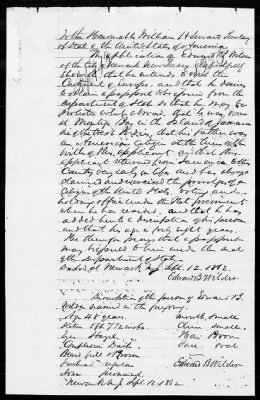 To the Honorable William H Seward Secretary
of State of the United States of America
The application of Edward B Wilder
of the City of Newark New Jersey respectfully
showeth, that he intends to visit the
Continent of Europe, and that he desires
to obtain a passport therefor from the
department of State so that he may be
protected while abroad. That he was born
at Montego Bay in the Island of Jamaica
in the West Indies, that his father was
an American Citizen at the time of the
birth of this applicant and that this
applicant returned from Jamaica to this
Country very early in life and has always
claimed and exercised the privileges of a
Citizen of the United States, voting and
holding office under the State government
when he has resided, and that he has
added hereto a description of his person
and that his age is forty eight years.
He therefore prays that a passport
may be issued to him under the seal
of the department of State.
Dated at Newark N.J. Sept. 12. 1862.
Edward B Wilder
Description of the person of Edward B.
Wilder named in the foregoing.
Age 48 years.
Mouth, Small
Stature 5 ft 7 1/2 inches
Chin Small.
Eyes Hazel
Hair Brown
Complexion Dark
Face Oval
Forehead regular
Edward B Wilder
Nose
Newark N.J. Sept. 12. 1862